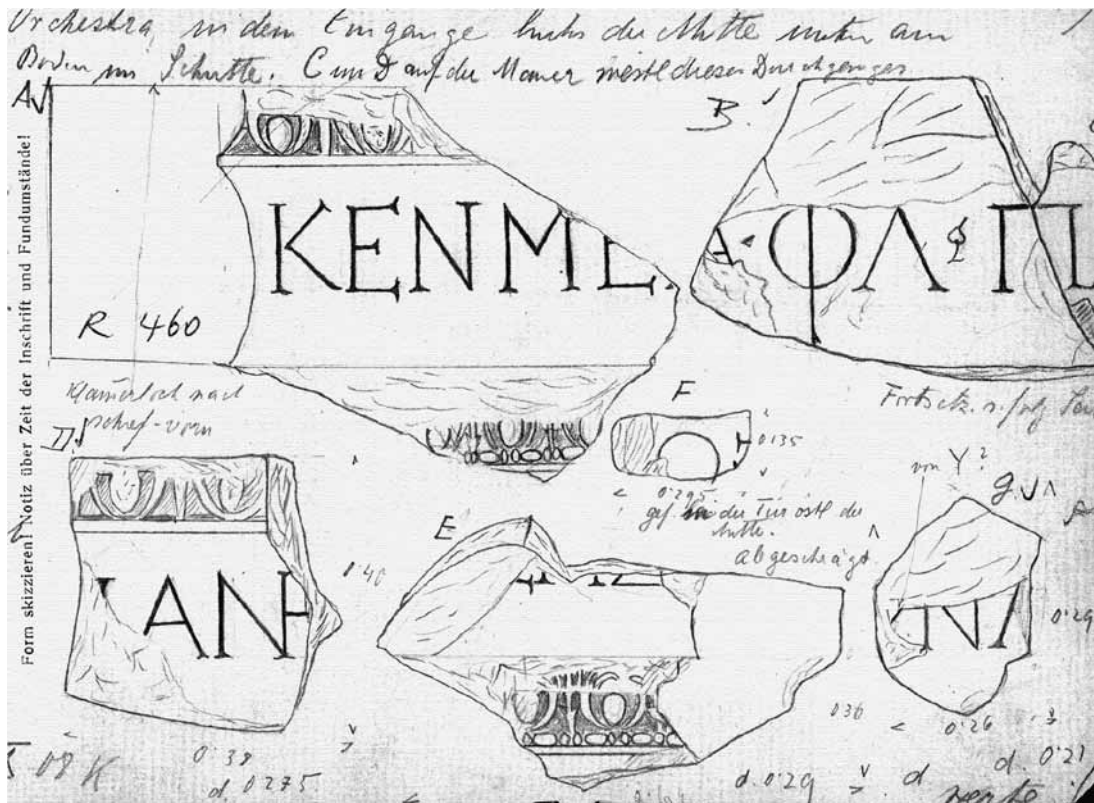 Orchestra, in dem Eingange links der Mitte unten am
Boden im Schutte. C und D auf der Mauer westl dieses Durchganges
A
B.
Form skizzieren! Notiz über Zeit der Inschrift und Fundumstände!
ΚΕΝΜΕ
ΦΛ Π
R 460
nach
schief-vorn
D.
F
0135
0·295
gef. in der Tür östl der
Mitte.
abgeschrägt
Fortsetz.
von Υ?
g.
E
0·40
ΙΑΝΗ
ΝΛ
0·29
036
0·26
0·38
d. 0275
d. 0·29
d
d. 0·21
08 K